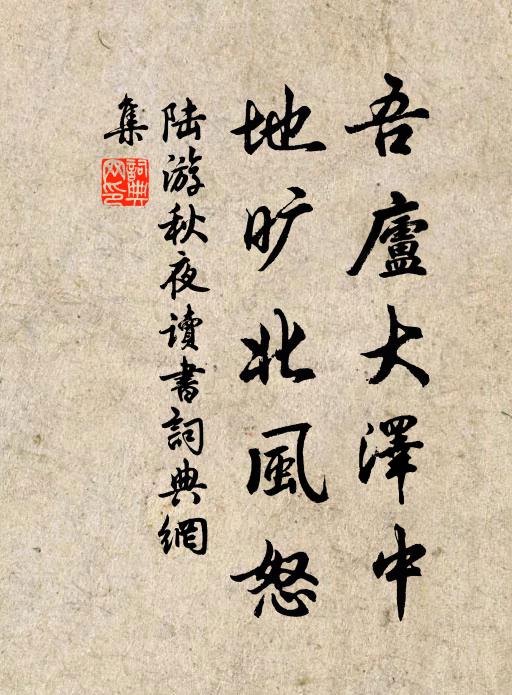 吾廬大澤中
地旷北風怒
陆游秋夜讀書詞典網
集
詞典網印